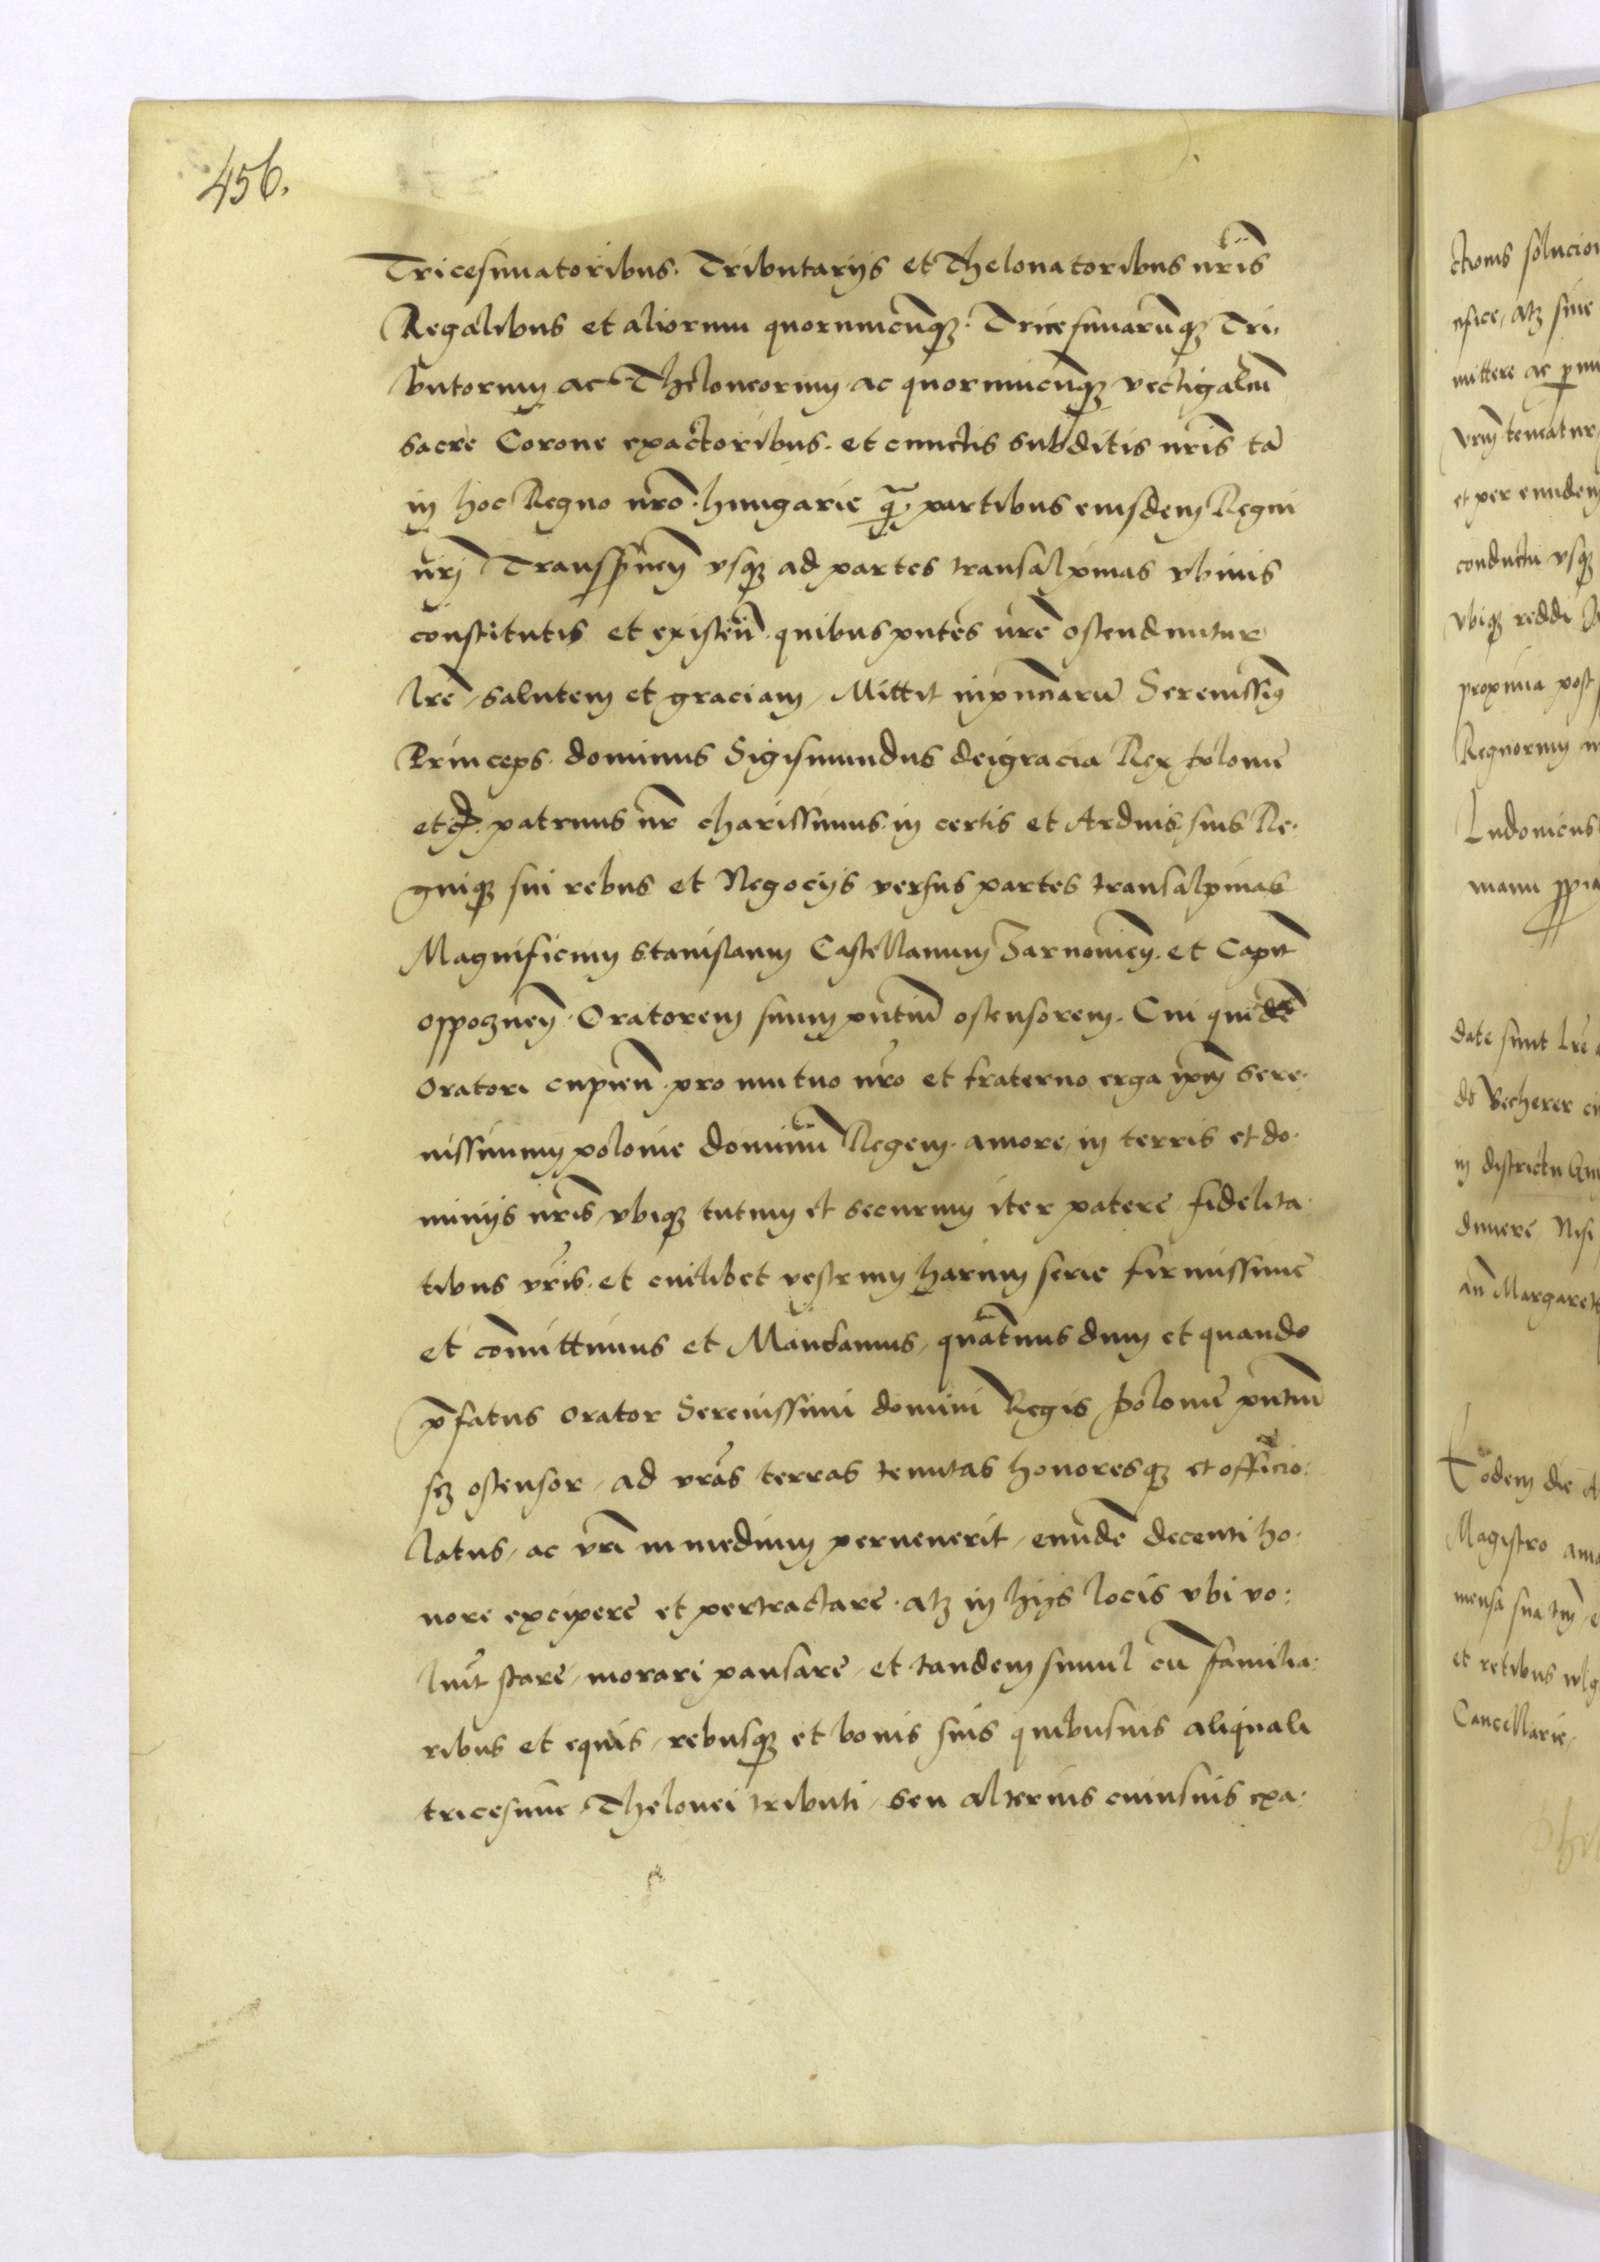 456.
Tricesimatoribus. Tributarijs et Thelonatoribus nr̃is
Regalibus et aliorum quorumcũq₃. Tricesimarũq₃ Tri.
butorum ac Theloneorum ac quorumcunq₃ vectigaliũ
sacre Corone exactoribus. et cunctis subditis nr̃is tã
in hoc Regno nr̃o. hungarie q̃ partibus eiusdem Regni
nr̃j Transs̃iluen̄ vsq₃ ad partes transalpinas vbiuis
constitutis et existeñ. quibus pñtes nr̃e ostenduntur
lr̃e, salutem et graciam, Mittit inpñciarũ Serenissimꝰ
Princeps. dominus Sigismundus deigracia Rex poloniẽ
etc̃. patruus nr̃ charissimus. in certis et Arduis suis Re.
gniq₃ sui rebus et Negocijs versus partes transalpinas
Magnificum Stanislaum Castellanum Zarnouicen̄. et Capit̃
oppoczneñ. Oratorem suum pñtiũ ostensorem. Cui quidẽ
Oratori cupieñ. pro mutuo nr̃o et fraterno erga ip̃m Sere.
nissimum polonie dominũ Regem. amore, in terris et do.
minijs nr̃is, vbiq₃ tutum et securum iter patere fidelita.
tibus vr̃is. et cuilibet vestrum harum serie firmissime
et com̃ittimus et Mandamus, quãtenus dum et quando
p̃fatus orator Serenissimi domini Regis Poloniẽ pñtiũ
s₃ ostensor, ad vr̃as terras tenutas honoresq₃ et officio:
latus, ac vr̃i in medium peruenerit, eundẽ decenti ho.
nore excipere et pertractare. atq₃ in hijs locis vbi vo:
luit̃ stare, morari pausare, et tandem simul cũ familia.
ribus et equis, rebusq₃ et bonis suis quibusuis aliquali
tricesime Thelonei tributi, seu alterius cuiusuis exa.
ctionis
atq₃ sine
mittere ac
teneatur
et per eundem
conductu vsq₃
vbiq₃ reddi
proxima post
Regnorum
Ludouicus
manu
date sunt lr̃e
de
in districtu
Nisi
Margaret
Eodem die
Magistro
mensa sua
et
Cancellarie